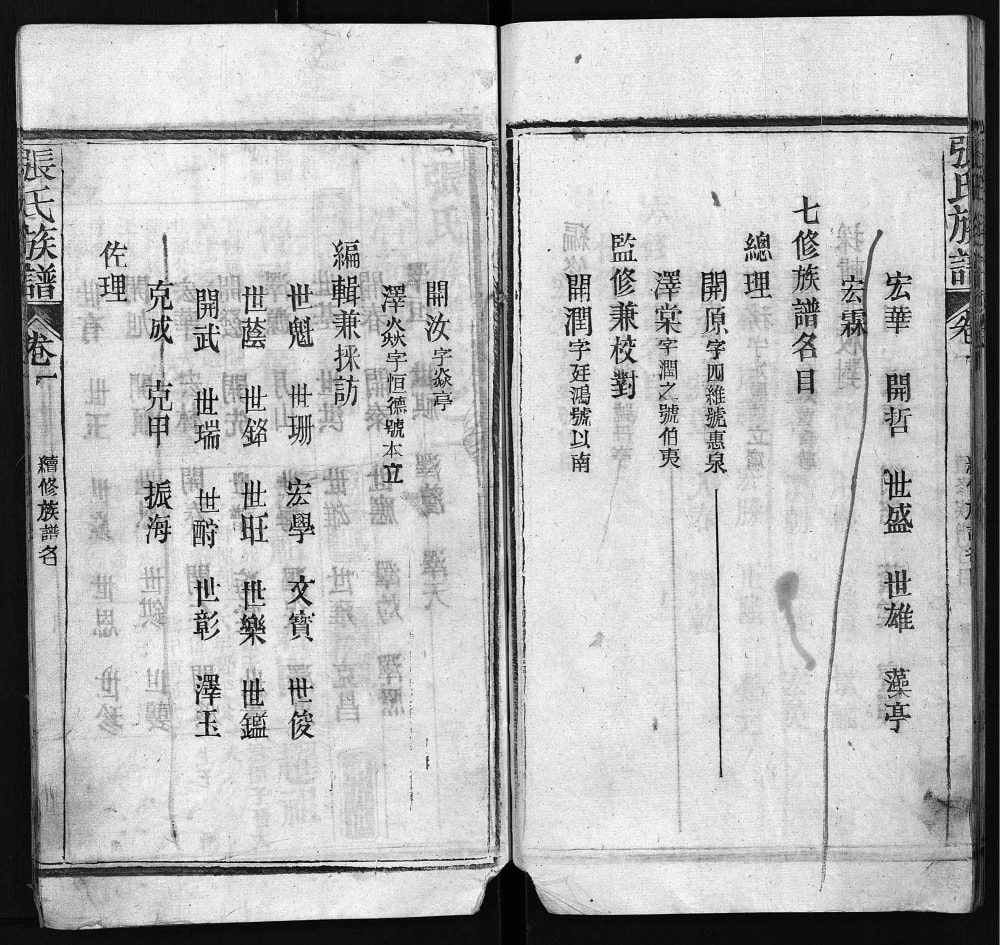 張氏族譜 卷一
宏華 開哲 世盛 世雄 藻亭
宏霖
七修族譜名目
總理
開原字四維號惠泉
澤棠字潤之號伯夷
監修兼校對
開潤字廷鴻號以南
開汝字焱亭
澤焱字恒德號本立
編輯兼採訪
世魁 世珊 宏學 文賓 世俊
世蔭 世鉩 世旺 世樂 世鑑
開武 世瑞 世酧 世彰 澤玉
克成 克甲 振海
佐理
張氏族譜 卷一 續修族譜名